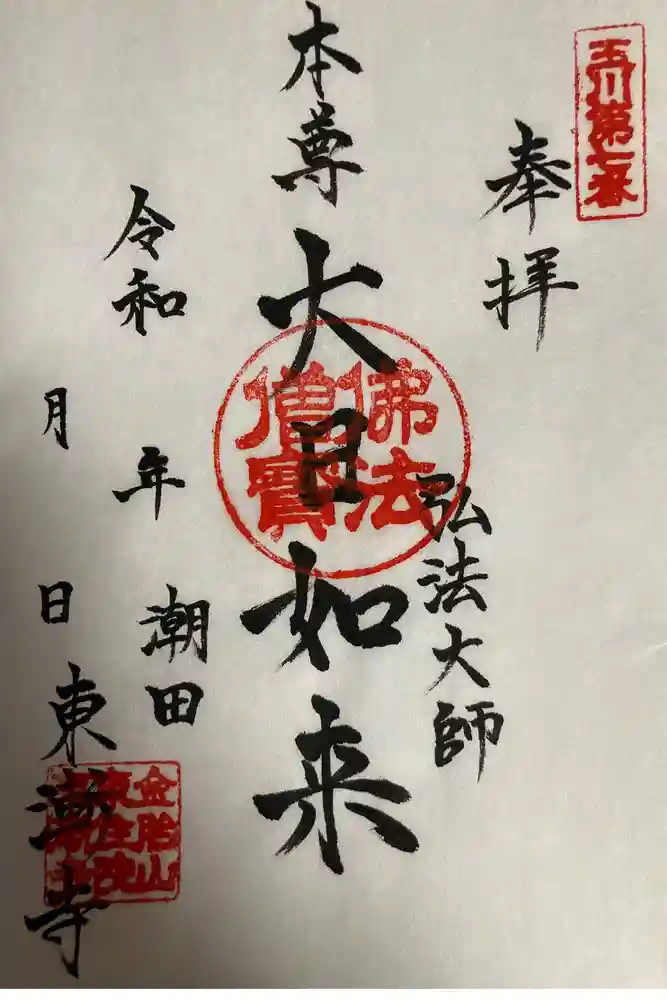 玉川第七番
奉拝
弘法大師
本尊
大日如来
佛法
僧寶
令和　年
月　日
潮田
東漸寺
金胎山